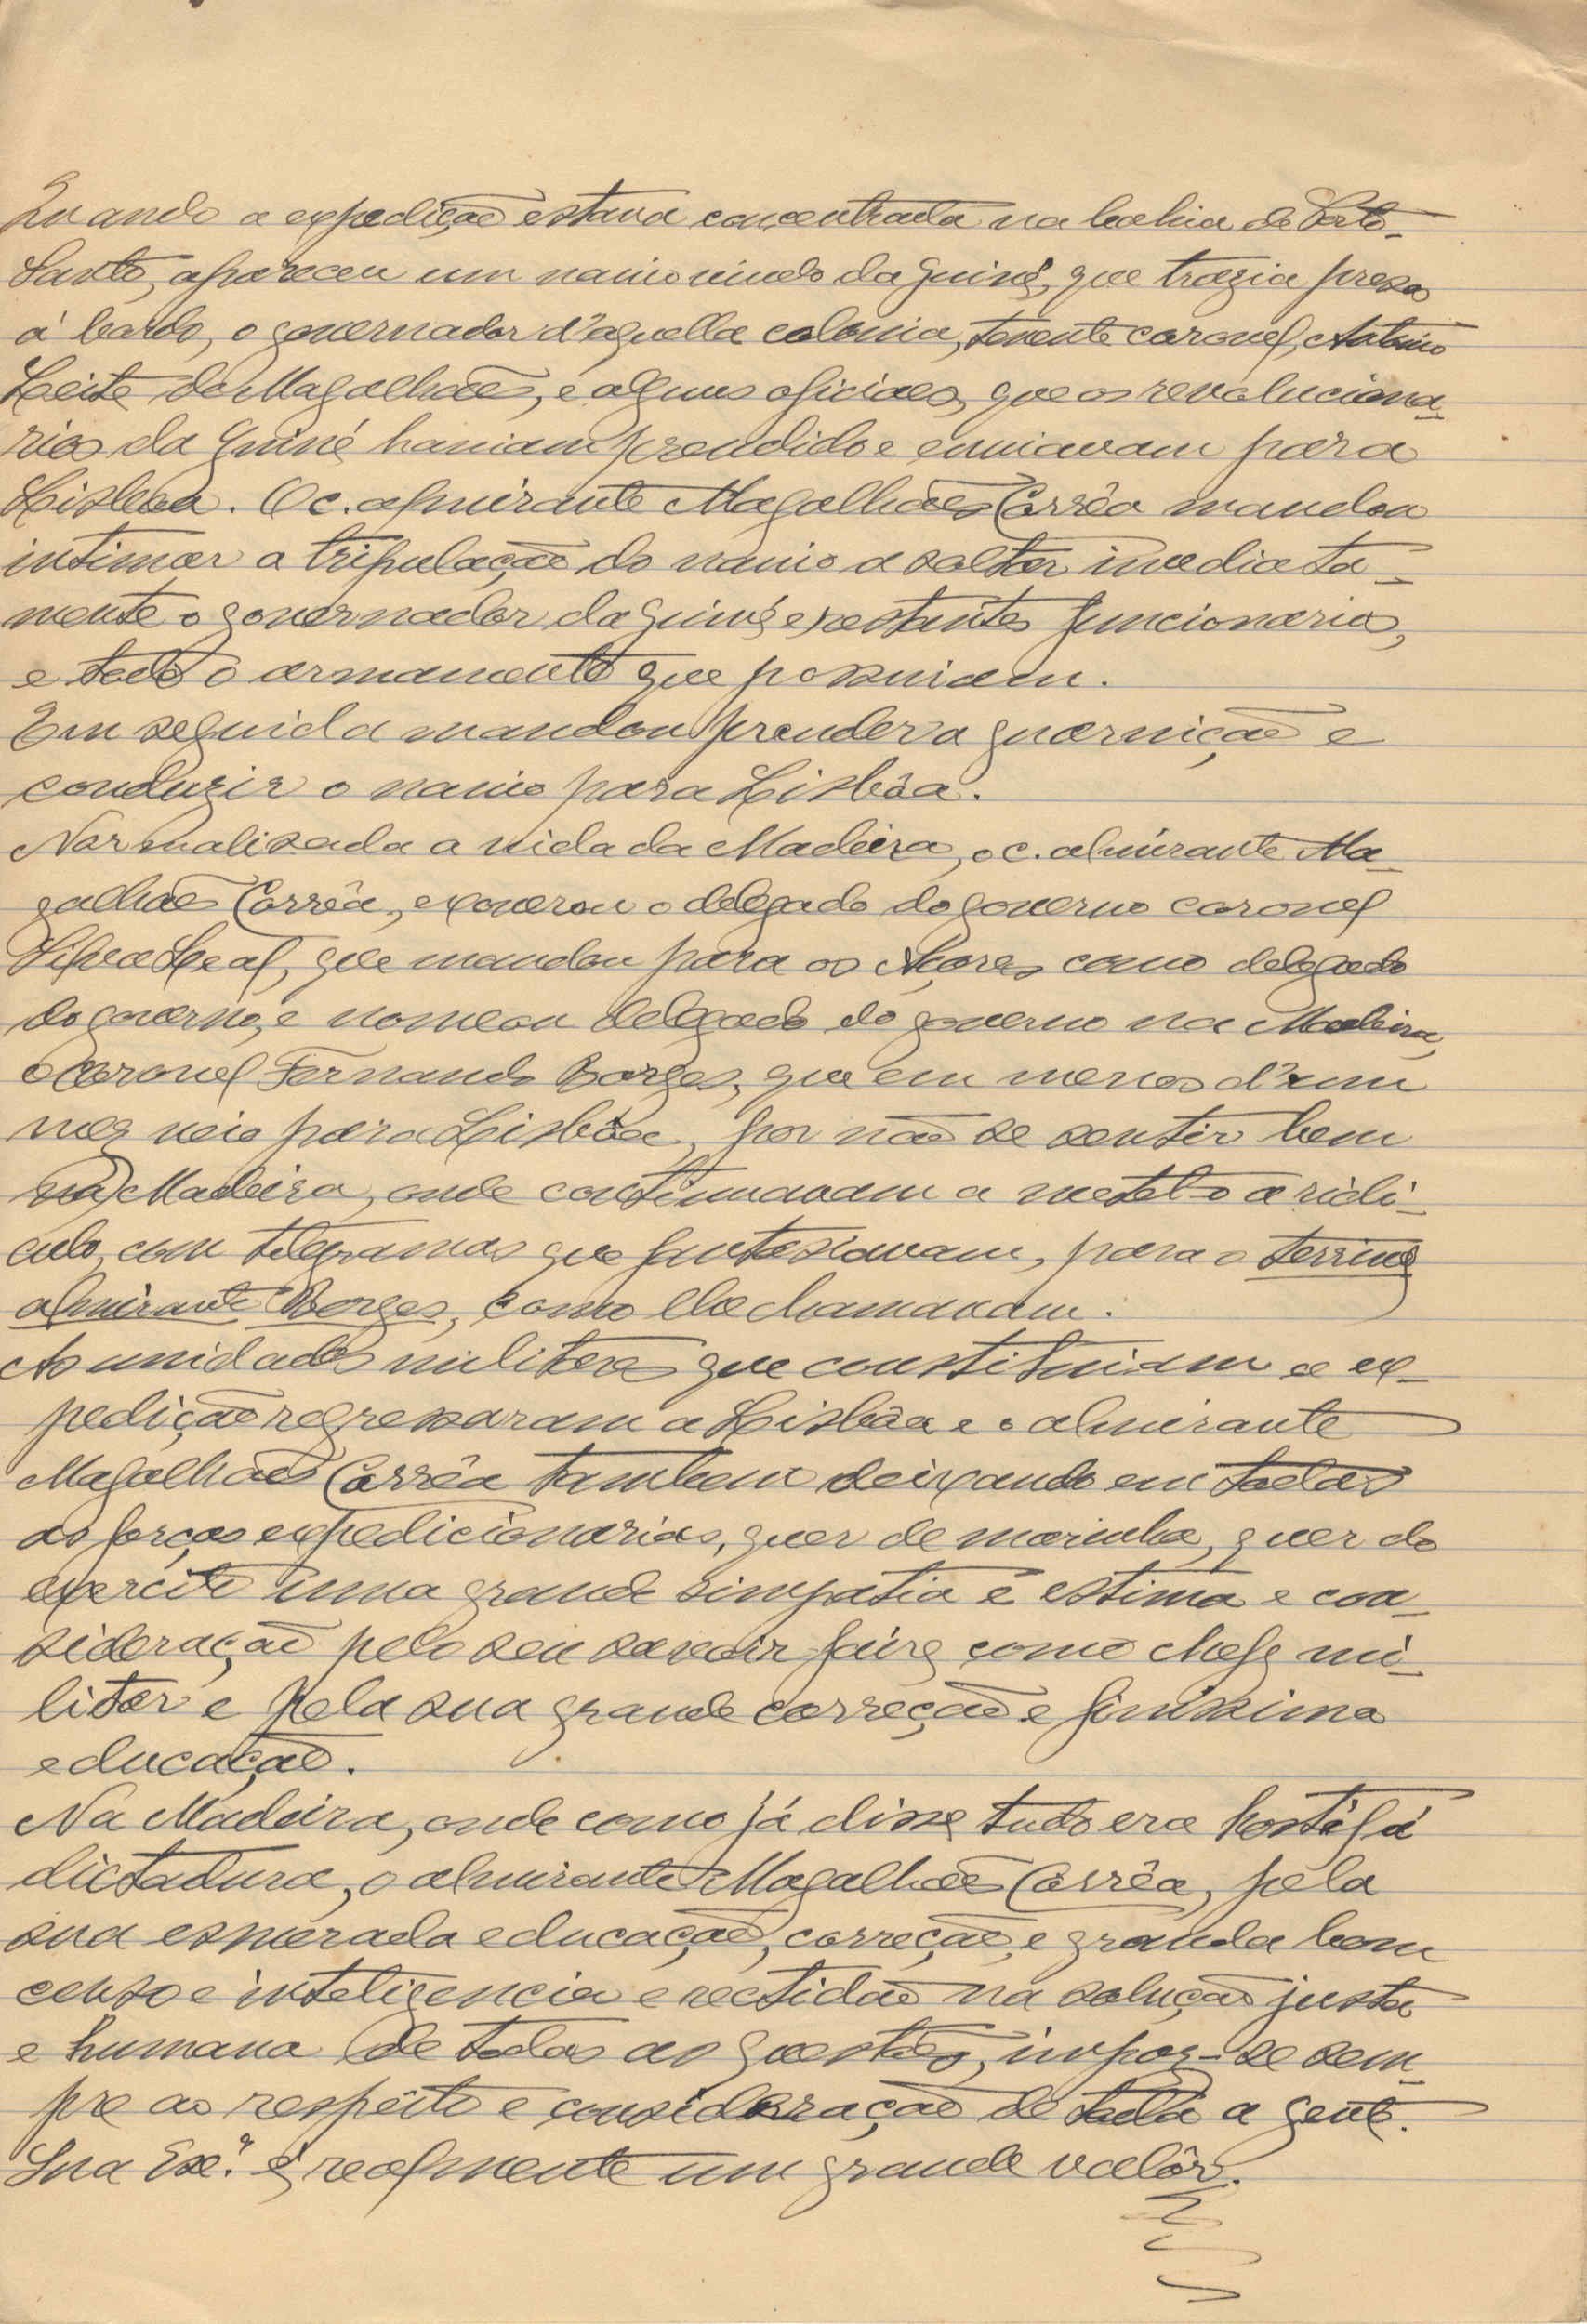 Quando a expedição estava concentrada na bahia de Porto-
Santo, apareceu um navio vindo da Guiné, que trazia presos
á bordo, o governador d'aquella colonia, tenente coronel, Antonio
Leite de Magalhães, e alguns oficiaes, que os revoluciona-
rios da Guiné haviam prendido e enviavam para
Lisboa. O c. almirante Magalhães Corrêa mandou
intimar a tripulação do navio a soltar imediata-
mente o governador da Guiné e restantes funcionarios,
e todo o armamento que possuiam.
Em seguida mandou prender a guarnição e
conduzir o navio para Lisbôa.
Normalisada a vida da Madeira, o c. almirante Ma-
galhães Corrêa, exonerou o delegado do governo coronel
Silva Leal, que mandou para os Açores como delegado
do governo, e nomeou delegado do governo na Madeira,
o coronel Fernando Borges, que em menos d'um
mez veio para Lisbôa, por não se sentir bem
na Madeira, onde continuavam a metel-o a ridi-
culo, com telegramas que fantasiavam, para o terrivel
almirante Borges, como lhe chamavam.
As unidades militares que constituiam a ex-
pedição regressaram a Lisbôa e o almirante
Magalhães Corrêa tambem deixando em todas
as forças expedicionarias, quer de marinha, quer do
exercito uma grande simpatia e estima e con-
sideração pelo seu savoir faire como chefe mi-
litar e pela sua grande correção e finissima
educação.
Na Madeira, onde como já disse tudo era hostil á
dictadura, o almirante Magalhães Corrêa, pela
sua esmerada educação, correção, e grande bom
censo e inteligencia e rectidão na solução justa
e humana de todas as questões, impoz-se sem-
pre ao respeito e consideração de toda a gente.
Sua Exª. é realmente um grande valôr.